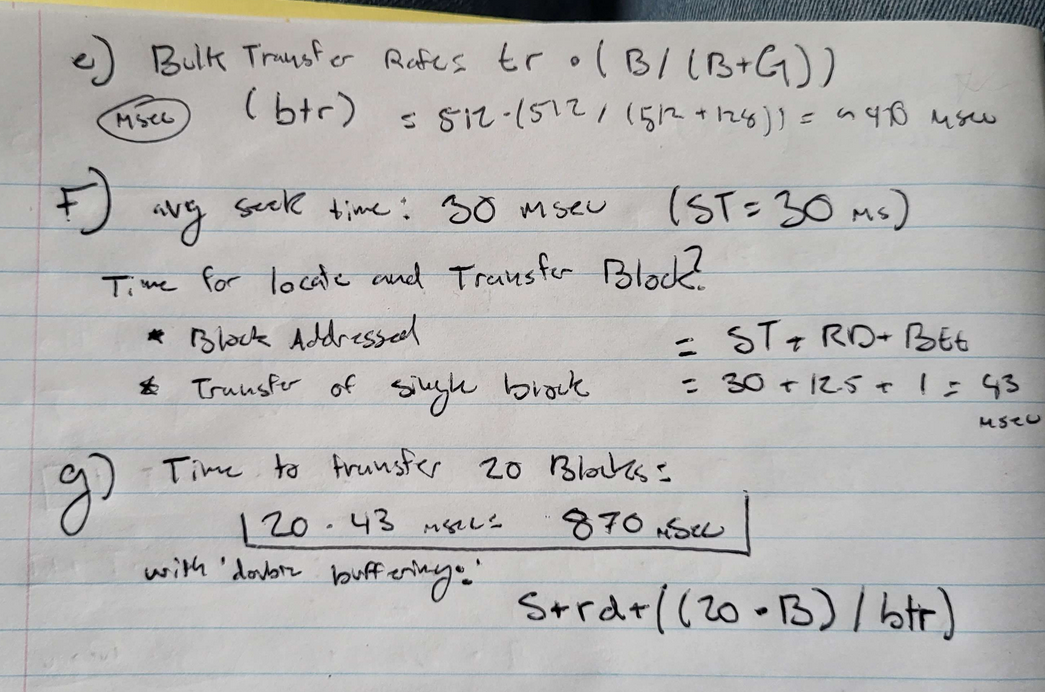 e) Bulk Transfer Rates tr • (B/(B+G))
msec (btr) = 512·(512/(512+128)) = ~ 410 msec
F) avg seek time: 30 msec (ST = 30 ms)
Time for locate and Transfer Block?
* Block Addressed = ST + RD + Btt
* Transfer of single block = 30 + 12.5 + 1 = 43
msec
g) Time to transfer 20 Blocks =
20 · 43 msec = 870 msec
with 'double buffering:'
S+rd+((20 • B) / btr)